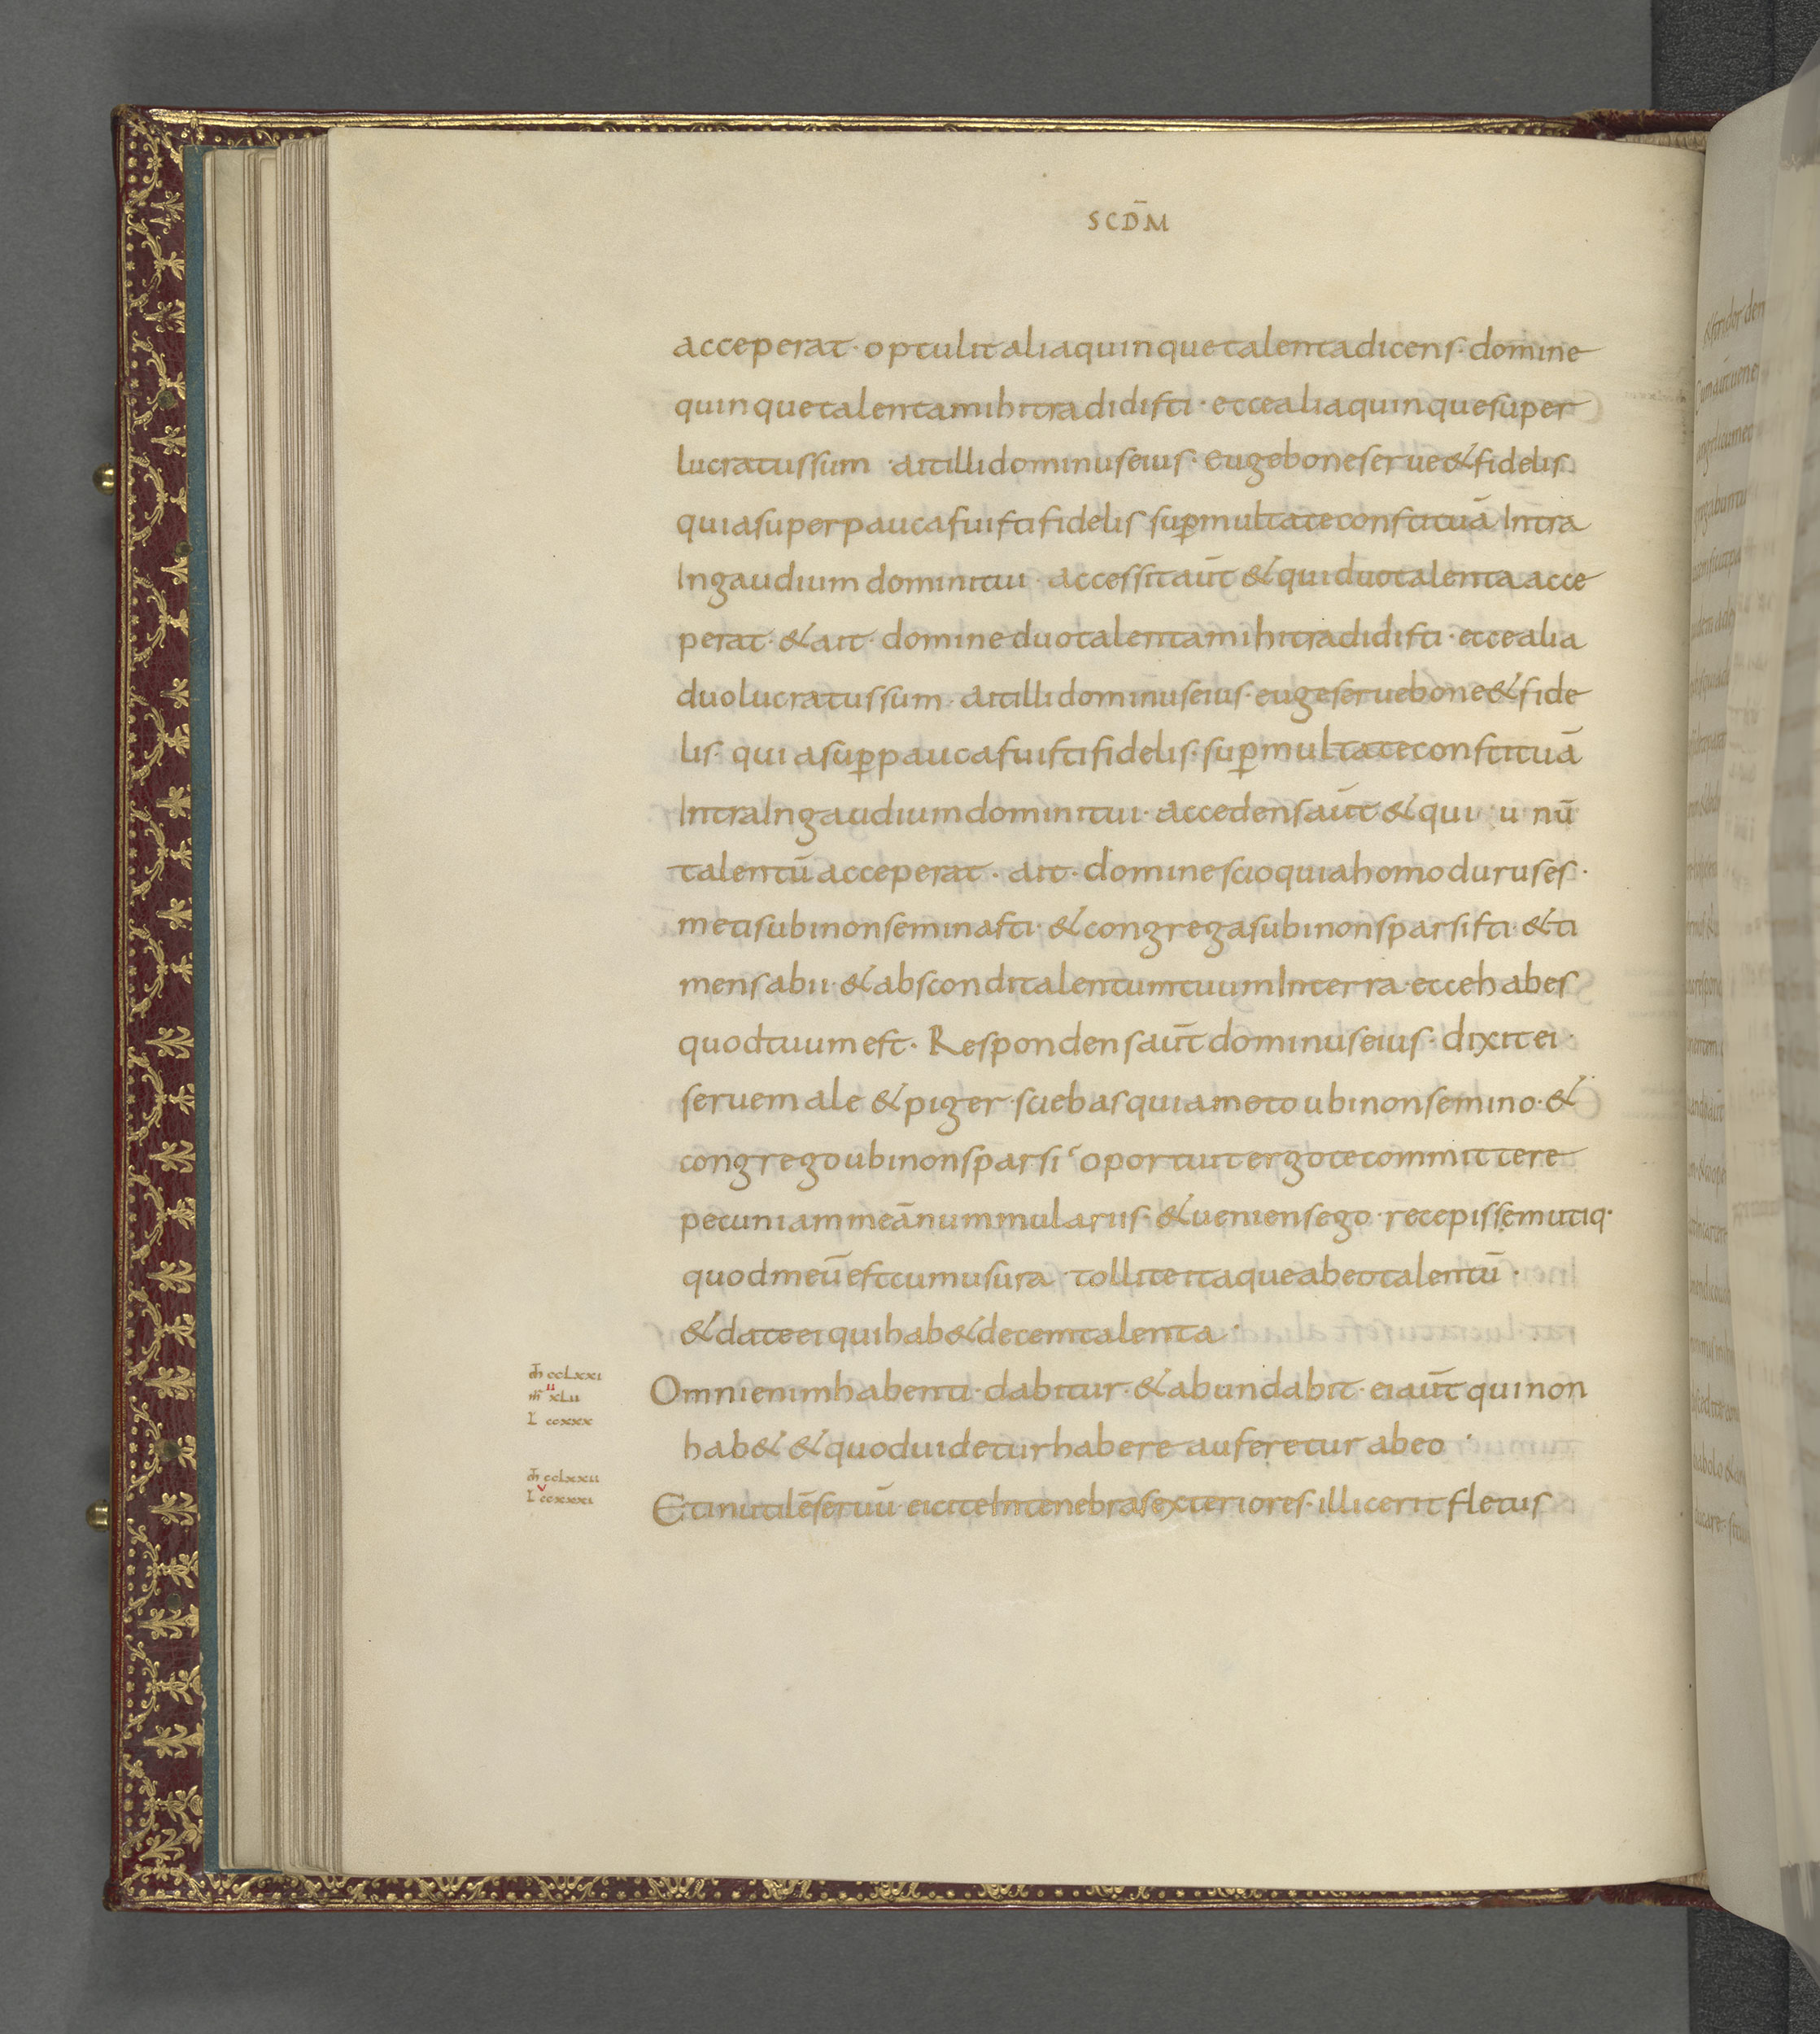 SCDM̄
acceperat· optulit alia quinque talenta dicens· domine
quinque talenta mihi tradidisti· ecce alia quinque super
lucratus sum· ait illi dominus eius· euge bone serue & fidelis
quia super pauca fuisti fidelis sup̄ multa te constituā Intra
In gaudium domini tui· accessit aūt & qui duo talenta acce
perat· & ait· domine duo talenta mihi tradidisti· ecce alia
duo lucratus sum· ait illi dominus eius· euge serue bone & fide
lis· quia sup̄ pauca fuisti fidelis· sup̄ multa te constituā
Intra In gaudium domini tui· accedens aūt & qui unū
talentū acceperat· ait· domine scio quia homo durus es·
metis ubi non seminasti· & congregas ubi non sparsisti· & ti
mens abii· & abscondi talentum tuum In terra· ecce habes
quod tuum est· Respondens aūt dominus eius· dixit ei·
serue male & piger· sciebas quia meto ubi non semino· &
congrego ubi non sparsi· oportuit ergo te committere
pecuniam meā nummulariis· & ueniens ego recepissem utiq·
quod meū est cum usura· tollite itaque ab eo talentū·
& date ei qui hab& decem talenta·
m̄ ccLxxi
m̄ xLii
L ccxxx
Omni enim habenti· dabitur· & abundabit· ei aūt qui non
hab& & quod uidetur habere auferetur ab eo·
m̄ ccLxxii
L ccxxxi
Et inutilē seruū· eicite In tenebras exteriores· illic erit fletus